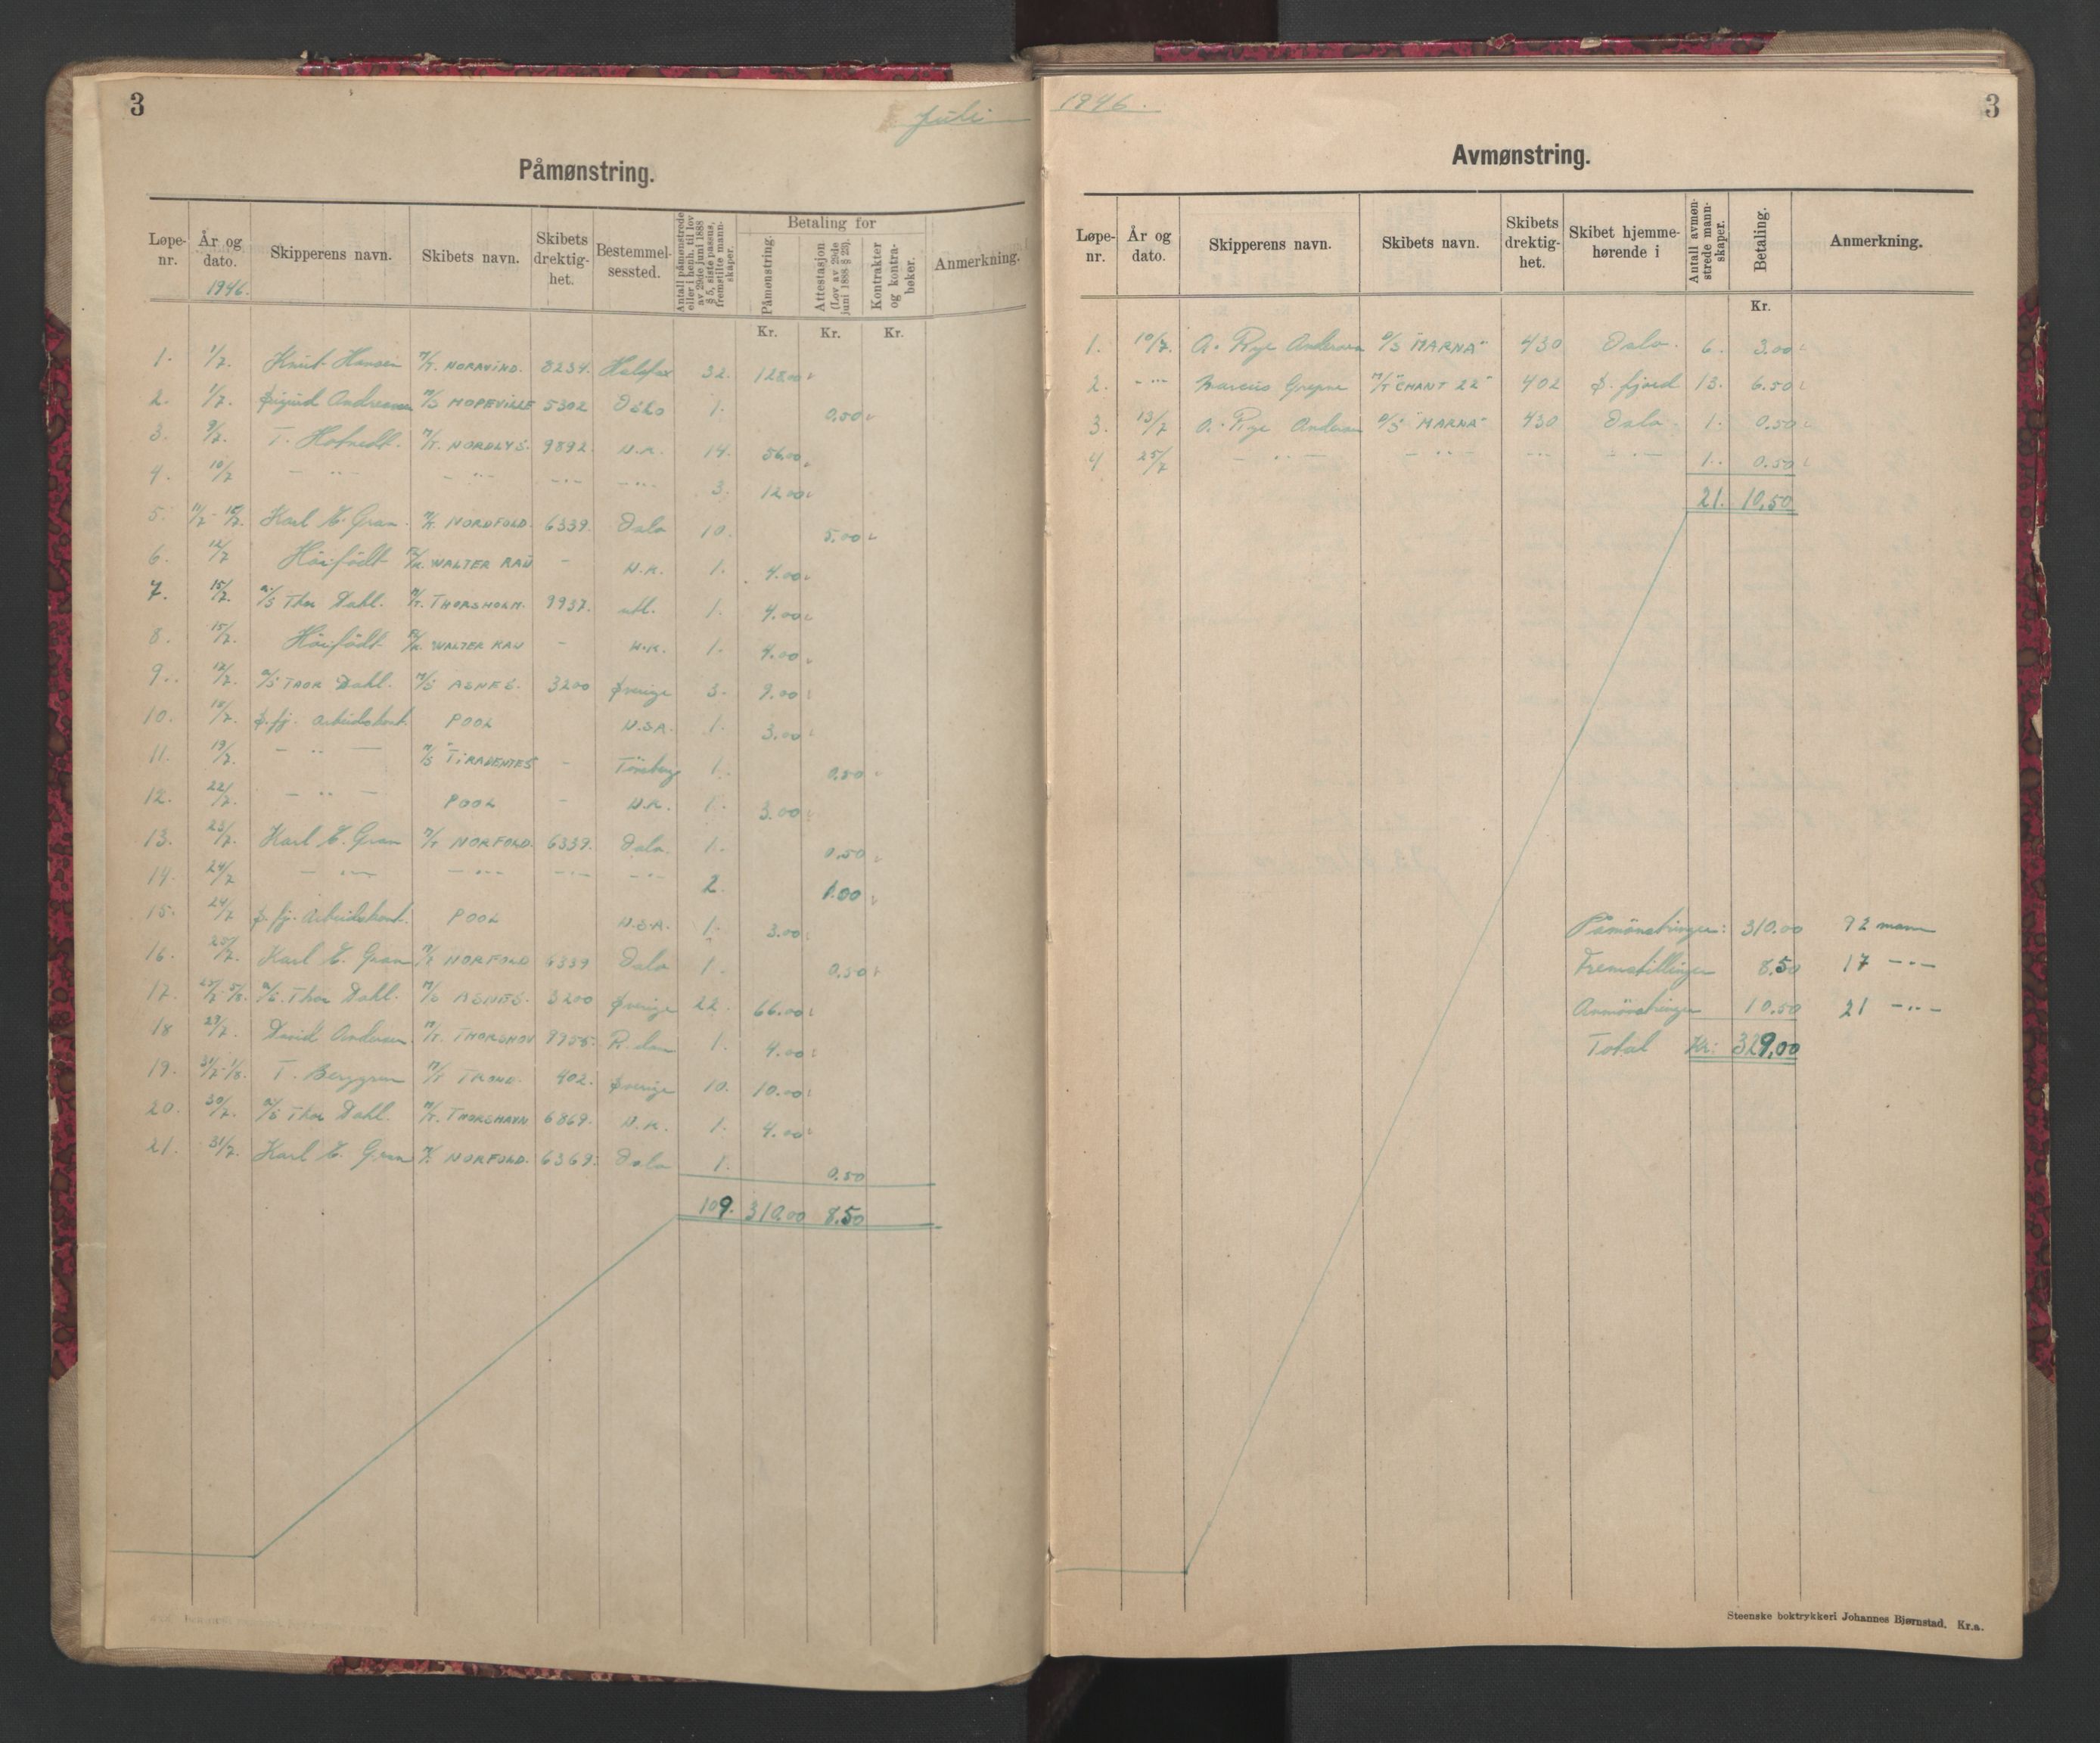 3
Juli
Påmønstring.
Løpe-nr.
År og dato.
Skipperens navn.
Skibets navn.
Skibets drektig-het.
Bestemmel-sessted.
Antall påmønstrede eller i henh. til lov av 29de juni 1888 § 5, siste passus, fremstilte mann-skaper.
Betaling for
Påmønstring.
Attestasjon (Lov av 29de juni 1888 § 23).
Kontrakter og kontra-bøker.
Anmerkning.
1946.
Kr. Kr. Kr.
1. 1/7. Knut Hansen M/T. NORDVIND. 8234. Halifax 32. 128.00
2. 1/7. Sigurd Andreassen M/S HOPEVILLE 5302 Oslo 1. 0.50
3. 9/7. T. M/T. NORDLYS. 9892. U.K. 14. 56.00
4. 10/7 — " — — " — — " — — " — 3. 12.00
5. 11/7 - 15/7. Karl E. Gran. M/T. NORDFOLD. 6339. Oslo 10. 5.00
6. 12/7 Höifödt WALTER RAU - U.K. 1. 4.00
7. 15/7. A/S Thor Dahl. M/T. THORSHOLM. 9937. utl. 1. 4.00
8. 15/7. Höifödt WALTER RAU - U.K. 1. 4.00
9. 17/7. A/S THOR Dahl. M/S ASNES. 3200 Sverige 3. 9.00
10. 18/7. S. fj. arbeidskont. POOL U.S.A. 1. 3.00
11. 19/7. — " — M/S TIRADENTES - Tönsberg 1. 0.50
12. 22/7. — " — POOL - U.K. 1. 3.00
13. 23/7. Karl E. Gran M/T NORFOLD. 6339. Oslo. 1. 0.50
14. 24/7 — " — — " — — " — — " — 2. 1.00
15. 24/7 S. fj. Arbeidskont. POOL U.S.A. 1. 3.00
16. 25/7. Karl E. Gran M/T NORFOLD 6339 Oslo 1. 0.50
17. A/S. Thor Dahl. M/S ASNES. 3200 Sverige 22. 66.00
18 29/7. David Andersen. M/T. THORSHOV 9955. 1. 4.00
19. 31/7-1/8. T. Berggren M/T TROND. 402. Sverige 10. 10.00
20. 30/7. A/S Thor Dahl. M/T. THORSHAVN 6869. U.K. 1. 4.00
21. 31/7. Karl E. Gran M/T. NORFOLD. 6369. Oslo 1. 0.50
109. 310.00 8.50
1946.
3
Avmønstring.
Løpe-nr.
År og dato.
Skipperens navn.
Skibets navn.
Skibets drektig-het.
Skibet hjemme-hørende i
Antall avmøn-strede mann-skaper.
Betaling.
Anmerkning.
Kr.
1. 10/7. A. Rye Andersen D/S "MARNA" 430 Oslo. 6. 3.00
2. — " — Marcus Grepne M/T "CHANT 22" 402 S. fjord 13. 6.50
3. 13/7 A. Rye Andersen D/S "MARNA" 430 Oslo. 1. 0.50
4 25/7 — " — — " — — " — — " — 1. 0.50
21. 10.50
Påmönstringer: 310.00 92 mann
Fremstillinger 8.50 17 — " —
Avmönstringer 10.50 21 — " —
Total Kr: 329,00
Steenske boktrykkeri Johannes Bjørnstad. Kr.a.